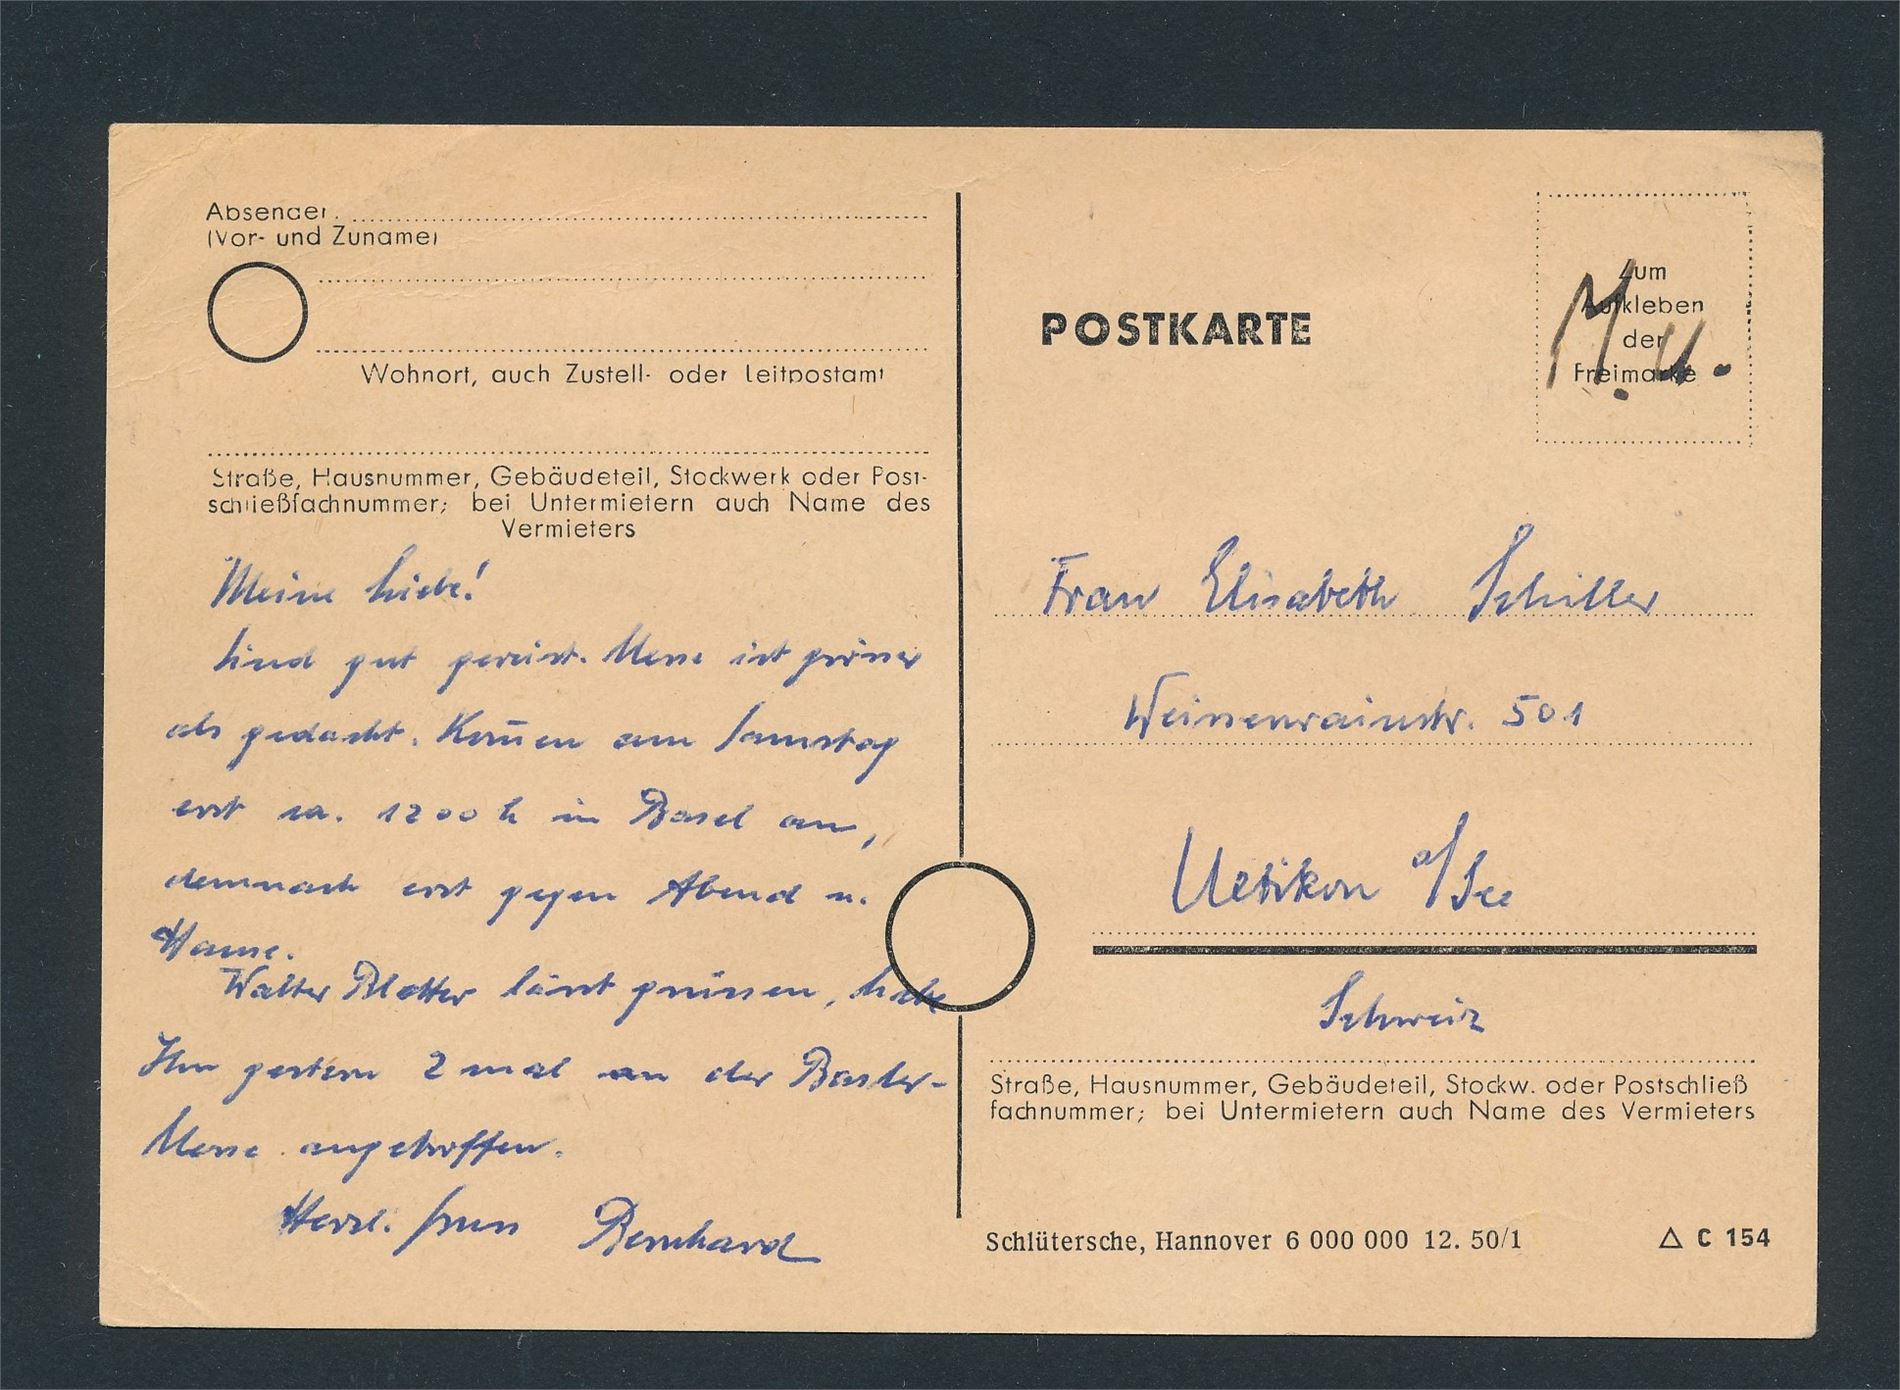 Absender:
(Vor- und Zuname)
Wohnort, auch Zustell- oder Leitpostamt
Straße, Hausnummer, Gebäudeteil, Stockwerk oder Post-
schließfachnummer; bei Untermietern auch Name des
Vermieters
Meine Liebe!
Sind gut gereist. Messe ist grösser
als gedacht. Kom̄en am Samstag
erst ca. 1200 h in Basel an,
demnach erst gegen Abend z.
Hause.
Walter Blatter lässt grüssen, habe
Ihn gestern 2 mal an der Basler-
Messe angetroffen.
Herzl. Gruss Bernhard
POSTKARTE
Zum
Aufkleben
der
Freimarke
M. U.
Frau Elisabeth Schiller
Weissenrainstr. 501
Uetikon a/See
Schweiz
Straße, Hausnummer, Gebäudeteil, Stockw. oder Postschließ
fachnummer; bei Untermietern auch Name des Vermieters
Schlütersche, Hannover 6 000 000 12. 50/1 △ C 154